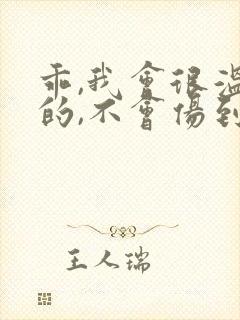 乖,我會很溫
的,不會傷到
王人瑞